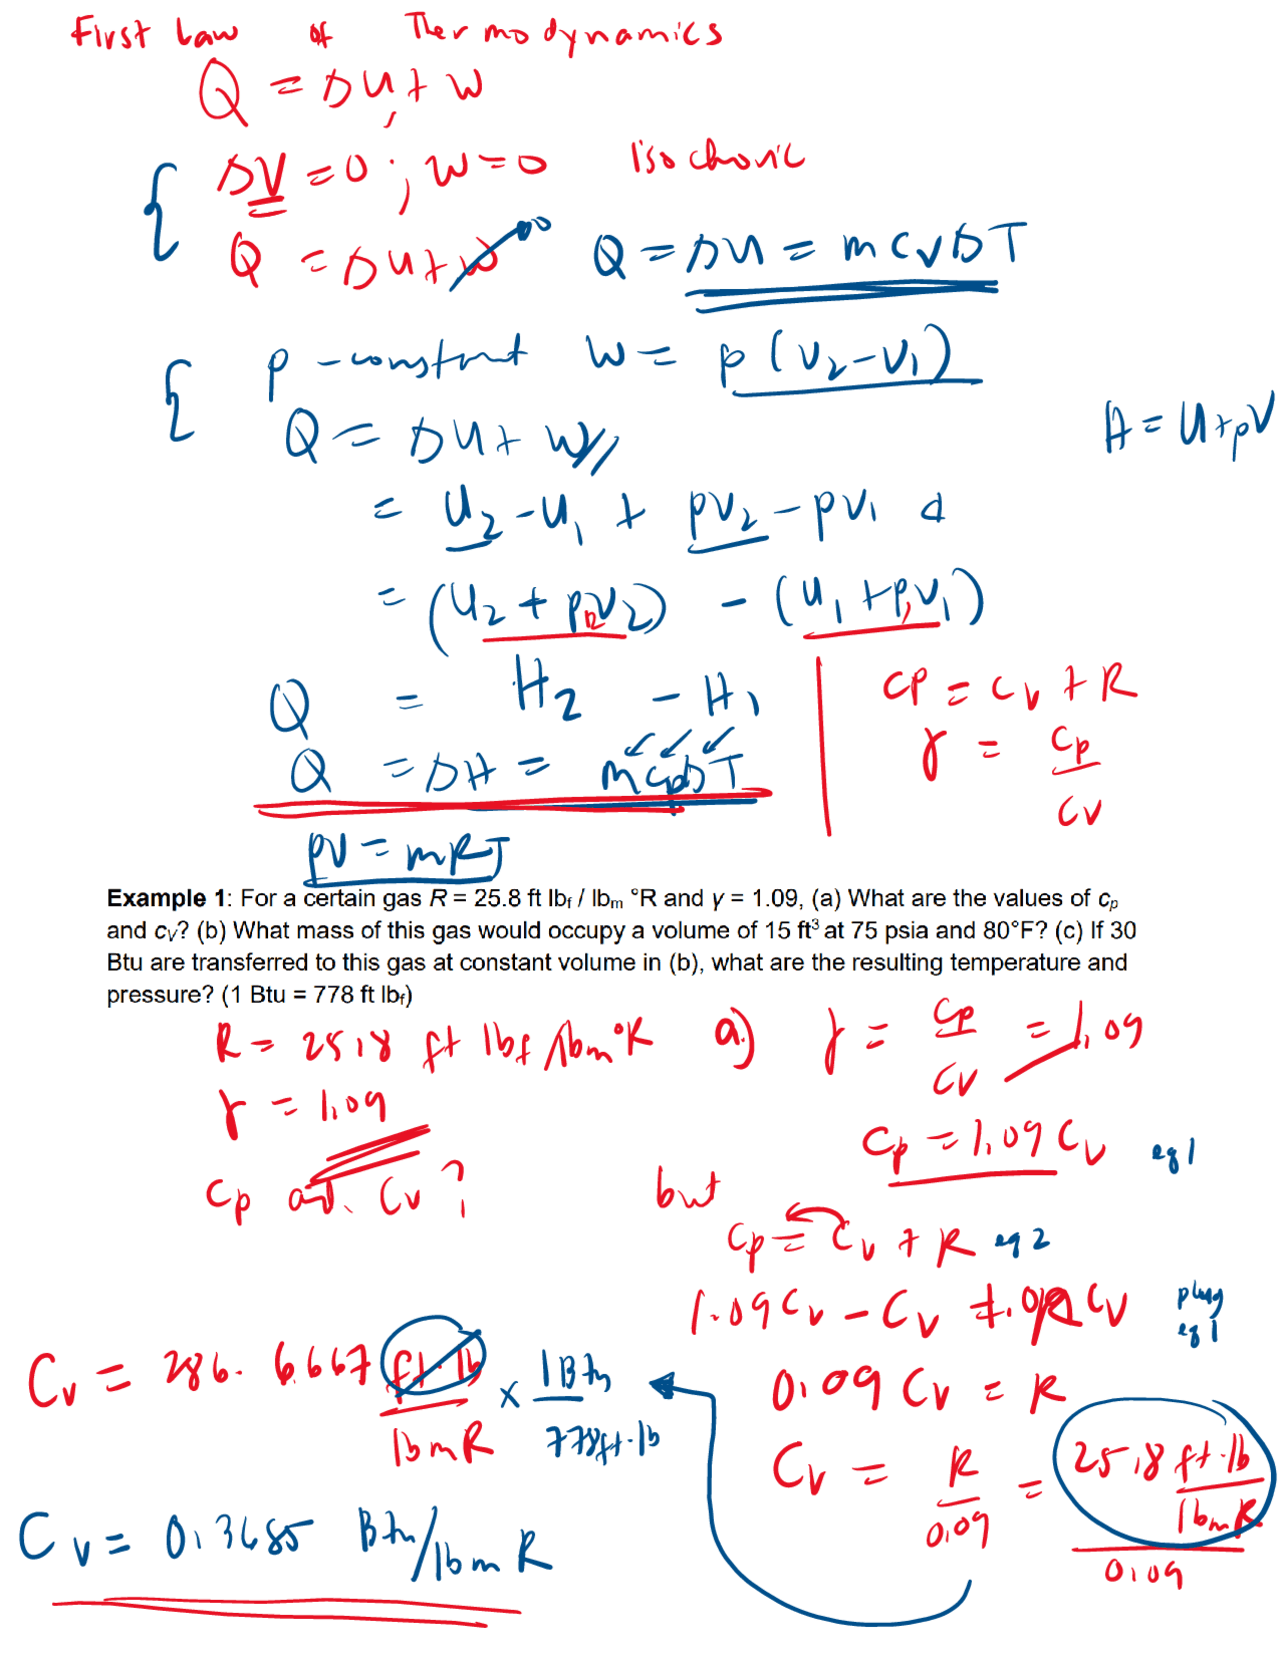 First Law of Thermodynamics
Q = ΔU + W
ΔV = 0 ; W = 0 isochoric
Q = ΔU + W⁰ Q = ΔU = m Cv ΔT
p - constant W = p (V₂ - V₁)
Q = ΔU + W
H = U + pV
= U₂ - U₁ + pV₂ - pV₁
= (U₂ + p₂V₂) - (U₁ + p₁V₁)
Q = H₂ - H₁
Q = ΔH = m Cp ΔT
Cp = Cv + R
γ = Cp / Cv
pV = mRT
Example 1: For a certain gas R = 25.8 ft lbf / lbm °R and γ = 1.09, (a) What are the values of cp
and cv? (b) What mass of this gas would occupy a volume of 15 ft³ at 75 psia and 80°F? (c) If 30
Btu are transferred to this gas at constant volume in (b), what are the resulting temperature and
pressure? (1 Btu = 778 ft lbf)
R = 25.8 ft lbf/lbm°R
γ = 1.09
Cp and Cv ?
a) γ = Cp / Cv = 1.09
Cp = 1.09 Cv eq 1
but
Cp = Cv + R eq 2
1.09 Cv - Cv = R plug eq 1
0.09 Cv = R
Cv = R / 0.09 = 25.8 ft·lb / lbm R / 0.09
Cv = 286.6667 ft·lb / lbm R × 1 Btu / 778 ft·lb
Cv = 0.3685 Btu/lbm R